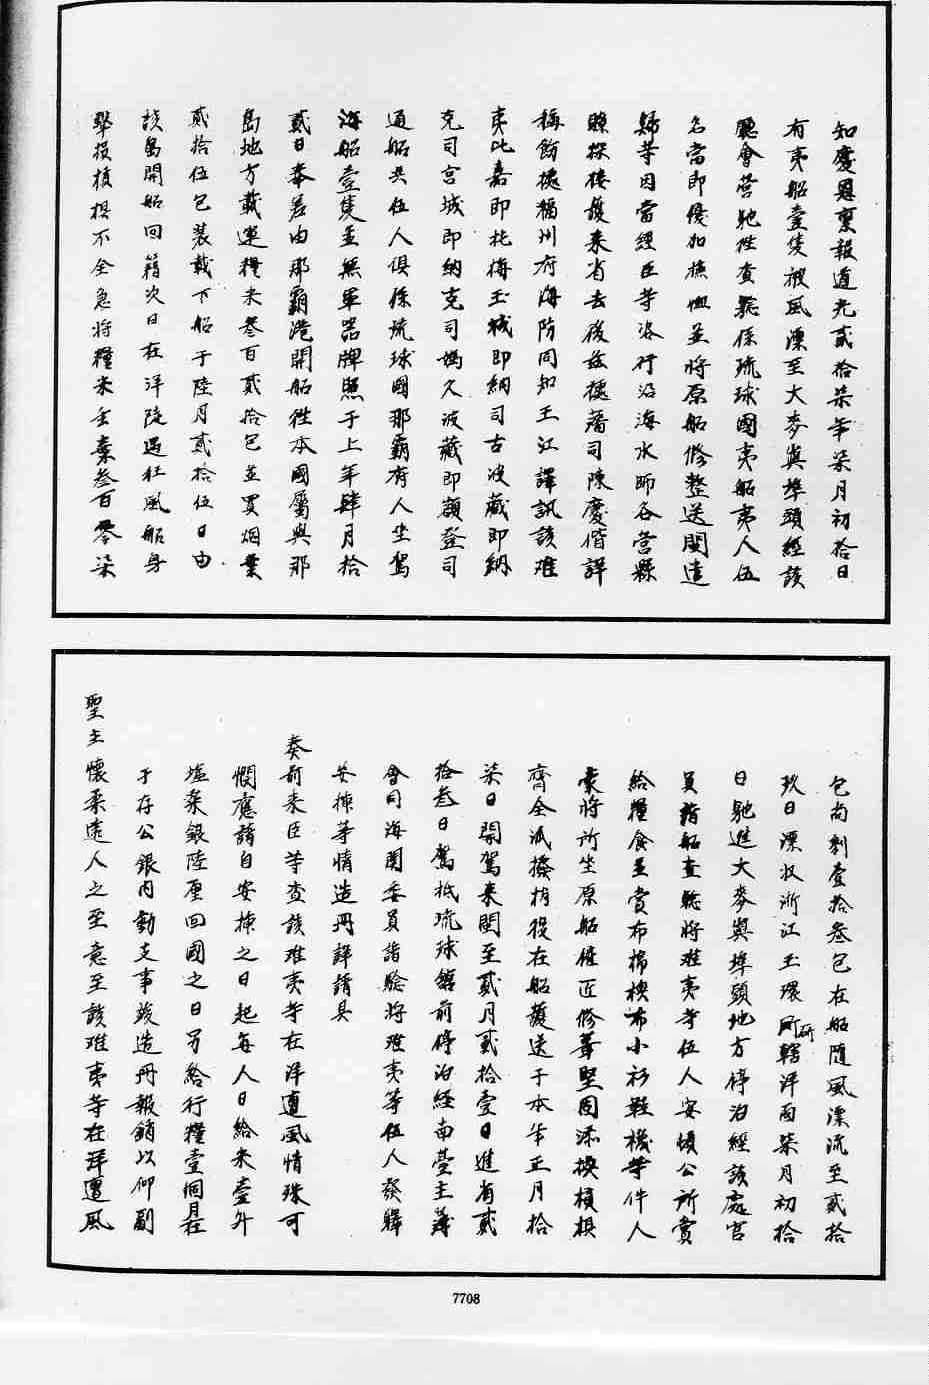 知慶恩稟報道光貳拾柒年柒月初拾日
有夷船壹隻被風漂至大麥嶼埠頭經該
廳會營馳往查驗係琉球國夷船夷人伍
名當即優加撫恤並將原船修整送閩遣
歸等因當經臣等咨行沿海水師各營縣
瞭探接護來省去後茲據藩司陳慶偕詳
稱飭據福州府海防同知王江譯訊該難
夷比嘉即托梅玉城即納司古波藏即納
克司宮城即納克司媽久波藏即額登司
通船共伍人俱係琉球國那霸府人坐駕
海船壹隻並無軍器牌照于上年肆月拾
貳日奉差由那霸港開船往本國屬與那
島地方載運糧米叁百貳拾包並買烟葉
貳拾伍包裝載下船于陸月貳拾伍日由
該島開船回籍次日在洋陡遇狂風船身
擊損槓椇不全急將糧米丟棄叁百零柒
包尚剩壹拾叁包在船隨風漂流至貳拾
玖日漂收浙江玉環所轄洋面柒月初拾
日馳進大麥嶼埠頭地方停泊經該處官
員詣船查驗將難夷等伍人安頓公所賞
給糧食並賞布棉襖布小衫鞋襪等件人
衆將所坐原船催匠修葺堅固添換槓椇
齊全派撥捎役在船護送于本年正月拾
柒日開駕來閩至貳月貳拾壹日進省貳
拾叁日駕抵琉球館前停泊經南臺主簿
會同海關委員詣驗將難夷等伍人發驛
安揷等情造冊詳請具
奏前來臣等查該難夷等在洋遭風情殊可
憫應請自安揷之日起每人日給米壹升
塩菜銀陸厘回國之日另給行糧壹個月在
于存公銀內動支事竣造冊報銷以仰副
聖主懷柔遠人之至意至該難夷等在洋遭風
研
7708